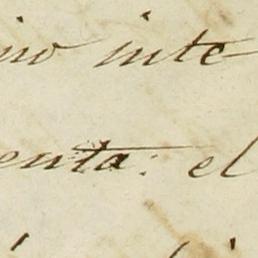 ino inte
enta: el